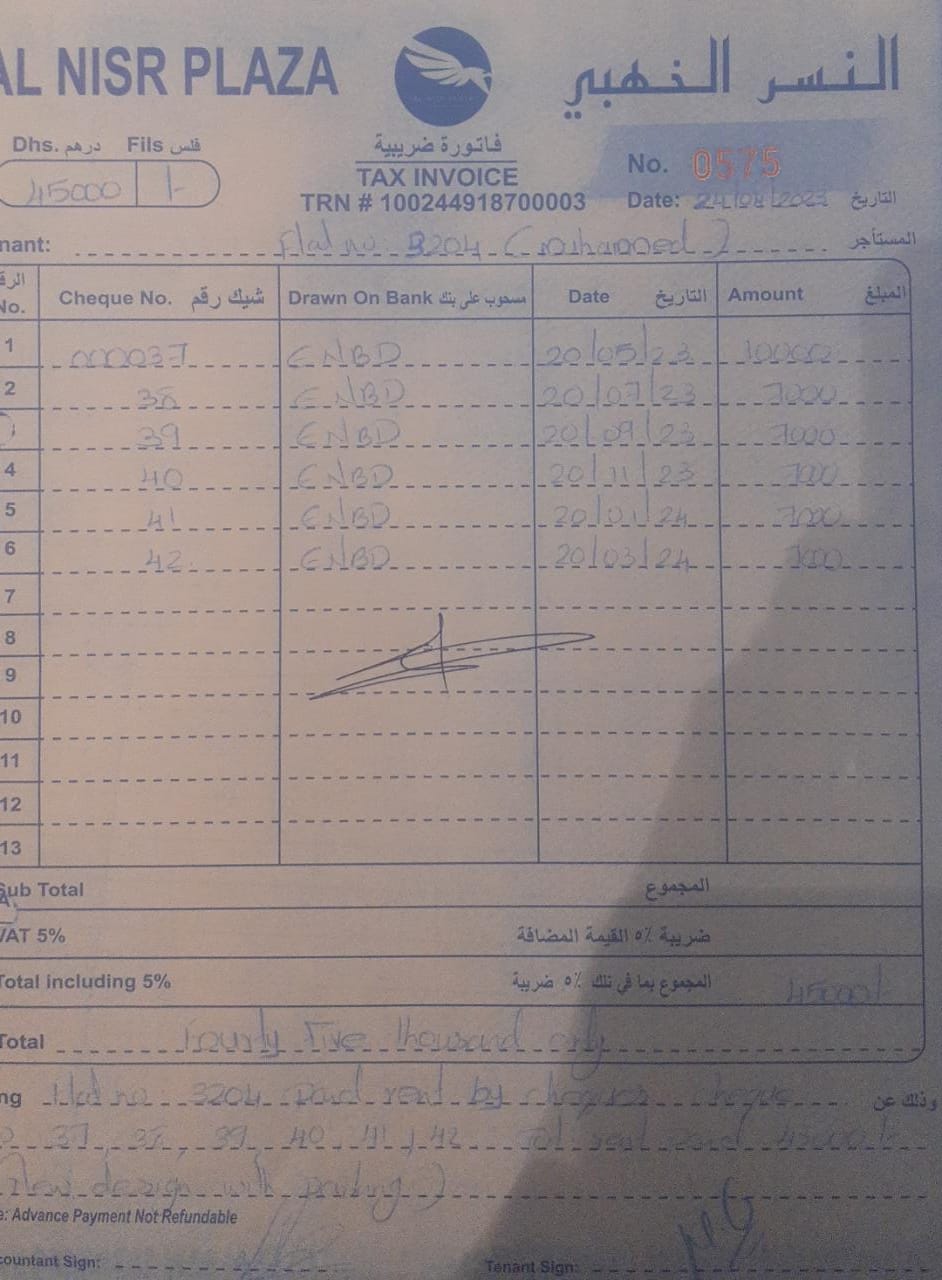 AL NISR PLAZA النسر الذهبي
Dhs. درهم Fils فلس
45000 /-
فاتورة ضريبية
TAX INVOICE
TRN # 100244918700003
No. 0575
Date: 24/08/2023 التاريخ
nant: Flat no. 3204 (mohammed) المستأجر
الرق No. Cheque No. شيك رقم Drawn On Bank مسحوب على بنك Date التاريخ Amount المبلغ
1 000037 ENBD 20/05/23 10000
2 38 ENBD 20/07/23 7000
39 ENBD 20/09/23 7000
4 40 ENBD 20/11/23 7000
5 41 ENBD 20/01/24 7000
6 42 ENBD 20/03/24 7000
7
8
9
10
11
12
13
Sub Total المجموع
VAT 5% ضريبة ٥٪ القيمة المضافة
Total including 5% المجموع بما في ذلك ٥٪ ضريبة 45000/-
Total Fourty Five thousand only
ng Flat no 3204 paid rent by cheques cheque وذلك عن
37, 38, 39, 40, 41, 42 rent 45000/-
New design with parking)
e: Advance Payment Not Refundable
countant Sign: Tenant Sign: